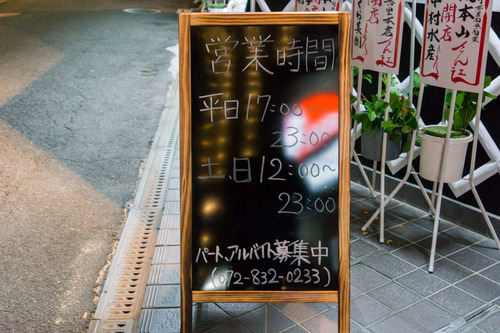 営業時間
平日17:00
23:00
土、日12:00~
23:00
パート、アルバイト募集中
(072-832-0233)
開店
村水産
開店
本山
さん江